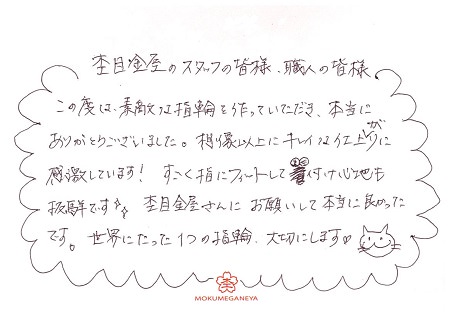 杢目金屋のスタッフの皆様、職人の皆様
この度は、素敵な指輪を作っていただき、本当に
ありがとうございました。想像以上にキレイな仕上がりに
感激しています！ すごく指にフィートして着け心地も
抜群です。杢目金屋さんにお願いして本当に良かった
です。世界にたった1つの指輪、大切にします。
MOKUMEGANEYA